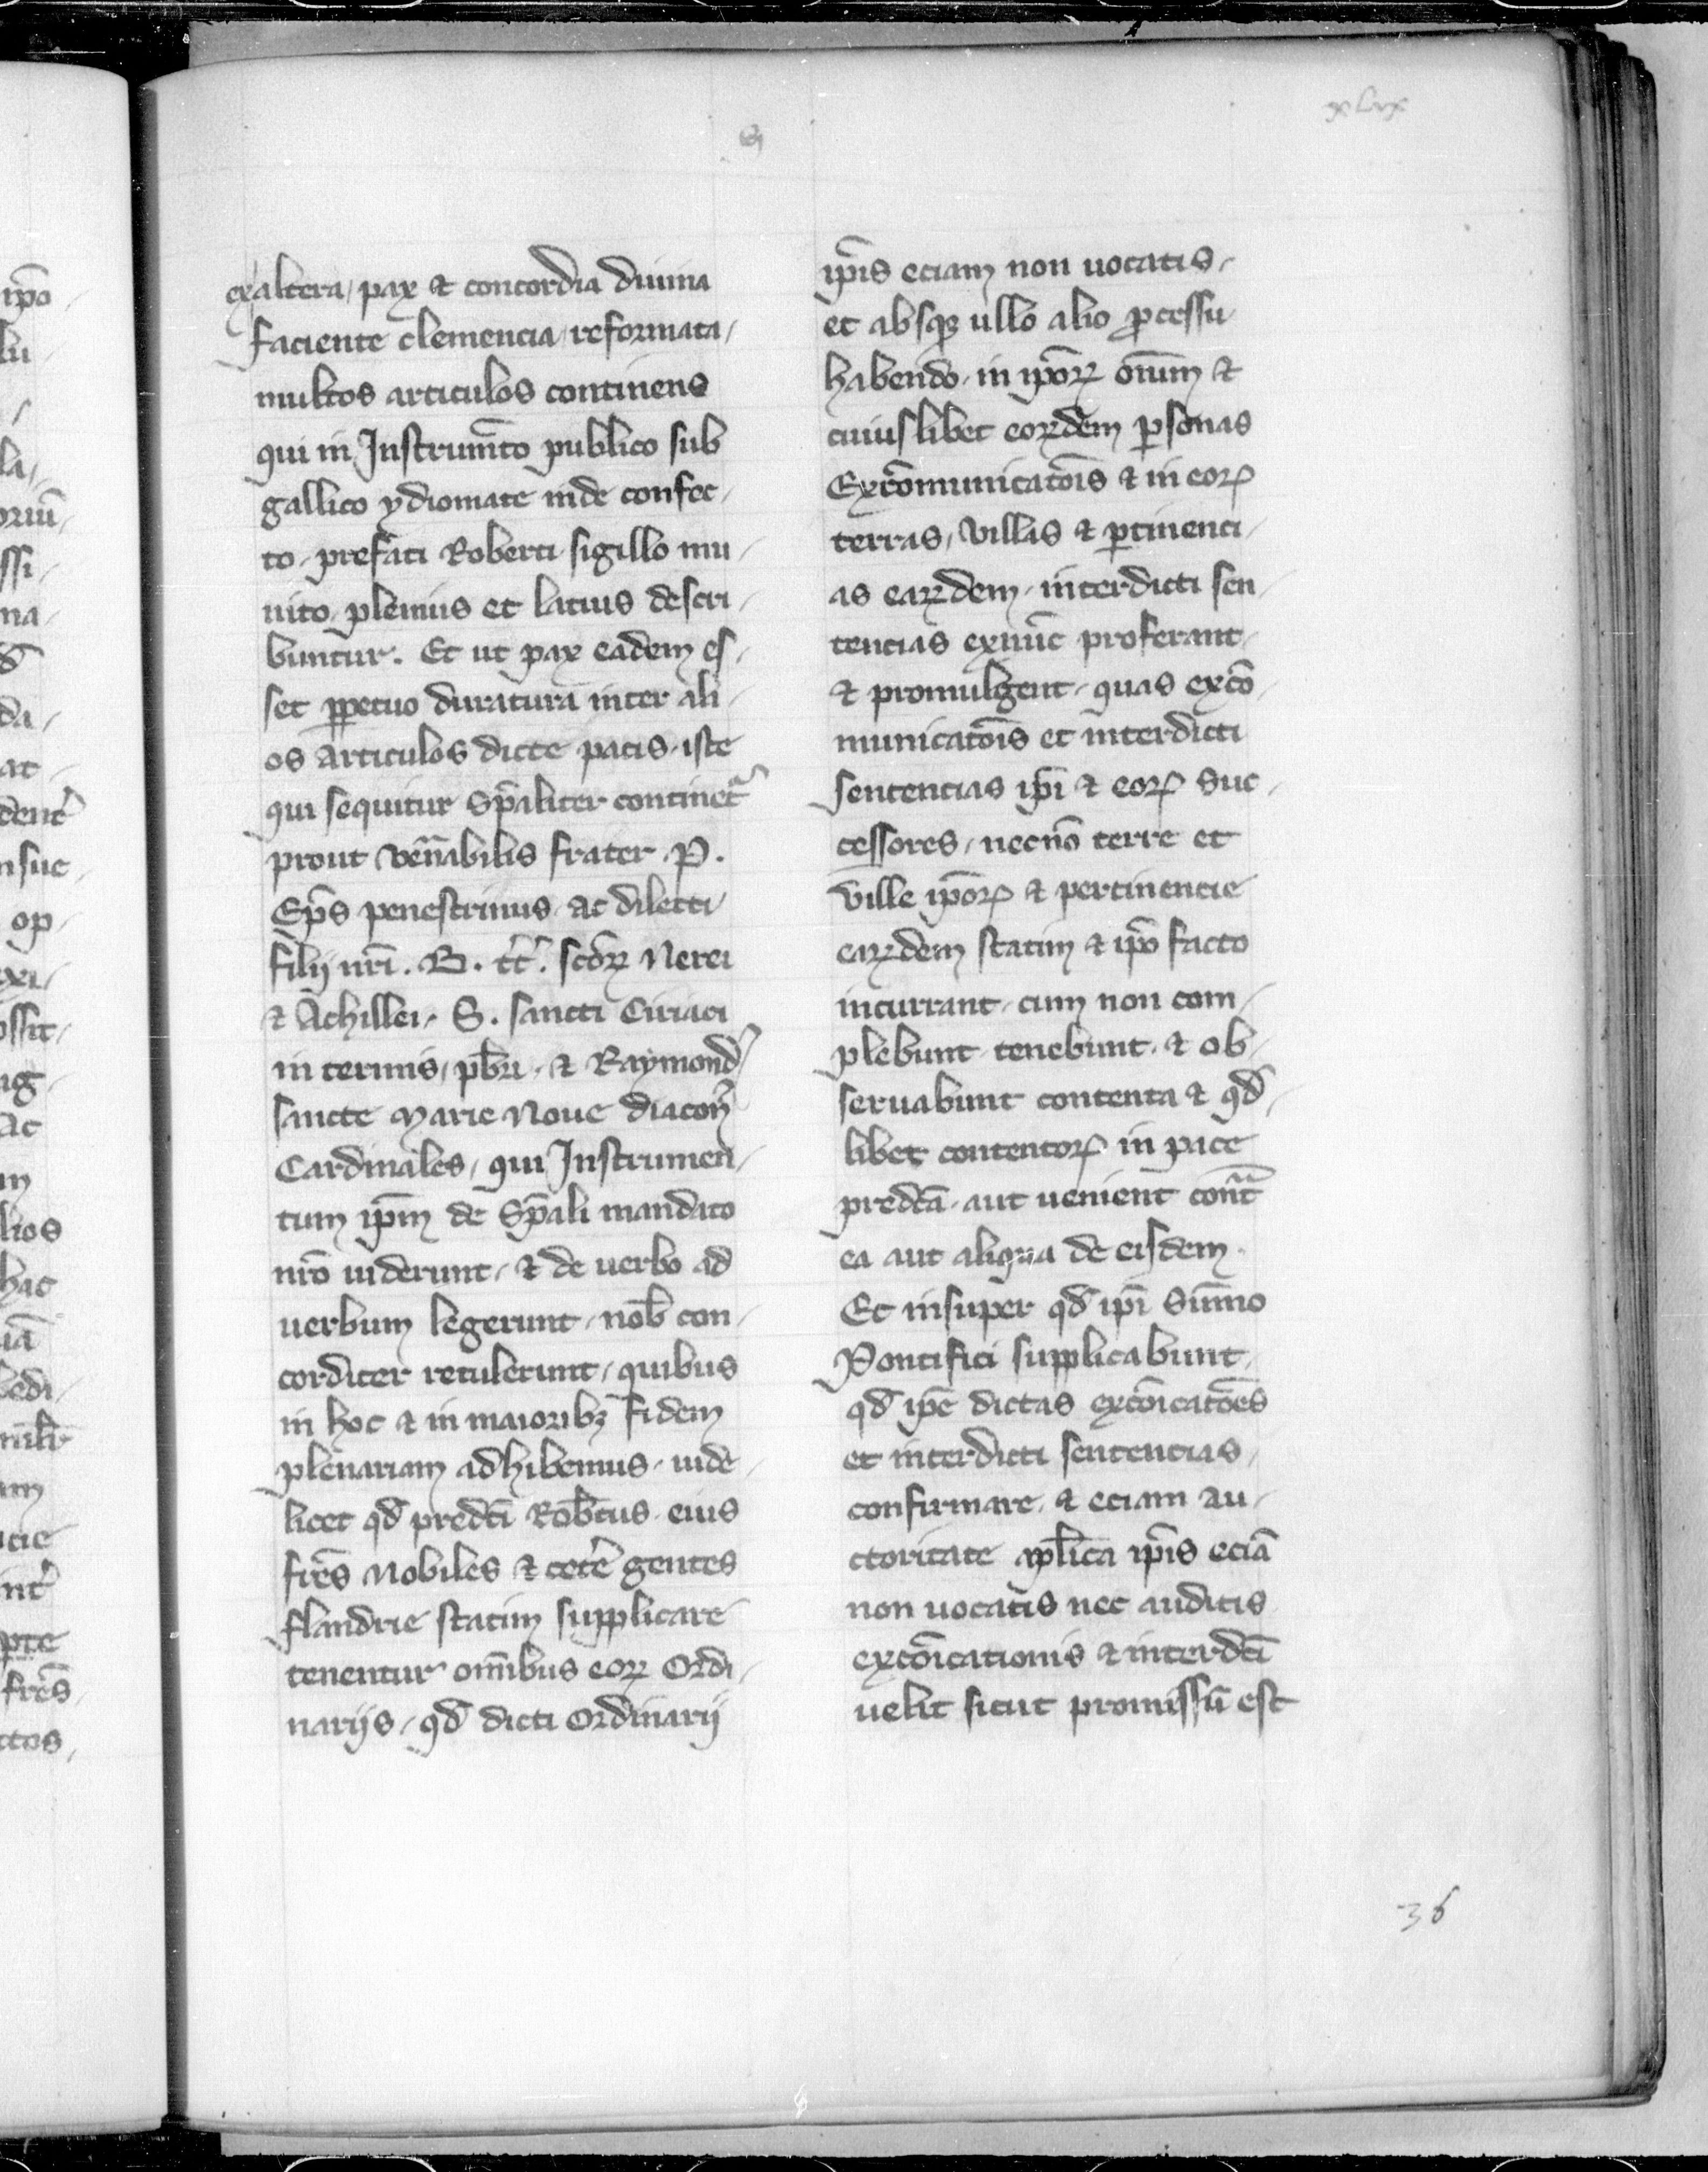 xlix
ex altera / pax ⁊ concordia diuina
faciente clemencia / reformata /
multos articulos continens
qui in Instrum̄to publico sub
gallico ydiomate inde confec /
to / prefati Roberti sigillo mu /
nito / plenius et latius descri /
buntur. Et ut pax eadem es /
set ꝑpetuo duratura inter ali /
os articulos dicte pacis / iste
qui sequitur Sp̄aliter continet᷑
prout ven̄abilis frater .P.
Ep̄s penestrinus / ac dilecti
filij nr̄i . B . tt̄. sc̄oꝝ Nerei
⁊ Achillei / S . sancti Ciriaci
in termis / pb̄ri / ⁊ Raymond᷑
sancte Marie Noue diacon̄
Cardinales / qui Instrumen /
tum ip̄m de Sp̄ali mandato
nr̄o viderunt / ⁊ de uerbo ad
uerbum legerunt / nob̄ con /
corditer retulerunt / quibus
in hoc ⁊ in maioribꝫ fidem
plenariam adhibemus / uide /
licet qd̄ predc̄i Rob̄tus / eius
fr̄es Nobiles ⁊ cetē gentes
flandrie statim supplicare
tenentur om̄ibus eoꝝ Ordi /
narijs / qd̄ dicti Ordinarij
ip̄is eciam non uocatis /
et absqꝫ ullo alio ꝓcessu
habendo / in ip̄oꝝ om̄m ⁊
cuiuslibet eoꝝdem ꝑsonas
Exc̄omunicatōis ⁊ in eoꝝ
terras / villas ⁊ ꝑtinenci /
as eaꝝdem / interdicti sen /
tencias exnūc proferant /
⁊ promulgent / quas exc̄o /
municatōis et interdicti
sentencias ip̄i ⁊ eoꝝ Suc /
cessores / necnō terre et
ville ip̄oꝝ ⁊ pertinencie
eaꝝdem statim ⁊ ip̄o facto
incurrant / cum non com /
plebunt / tenebunt / ⁊ ob /
seruabunt contenta ⁊ qd̄ /
libet contentoꝝ in pace
predc̄a / aut uenient cont̄
ea aut aliqua de eisdem .
Et insuper qd̄ ip̄i Sūmo
Pontifici supplicabunt /
qd̄ ip̄e dictas exc̄oicatōes
et interdicti sentencias /
confirmare / ⁊ eciam au /
ctoritate apl̄ica ip̄is eciā
non uocatis nec auditis
exc̄oicationis ⁊ interdc̄i
uelit sicut promissū est
36